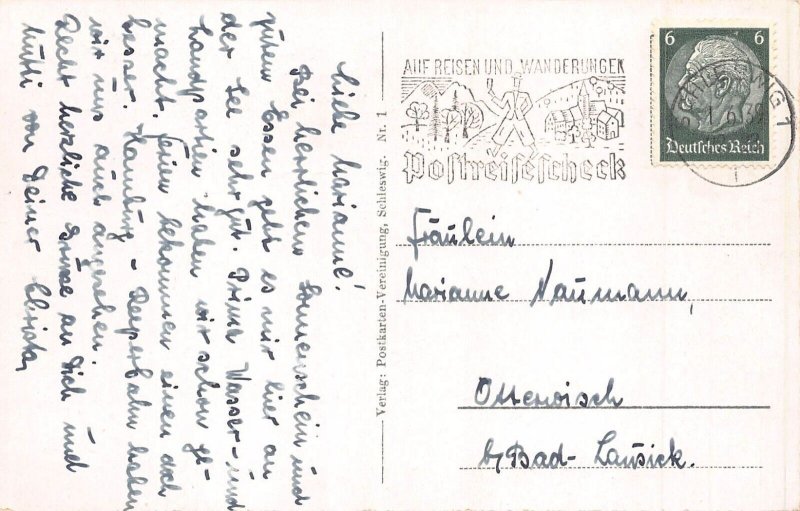 Liebe Marianne!
Bei herrlichem Sonnenschein und
gutem Essen geht es mir hier an
der See sehr gut. Prima Wasser- und
Landpartien haben wir schon ge-
macht. Ferien bekommen einen doch
besser. Hamburg - Reeperbahn haben
wir uns auch angesehen.
Recht herzliche Grüsse an Dich und
Mutti von Deiner Christa
Verlag: Postkarten-Vereinigung, Schleswig. Nr. 1
AUF REISEN UND WANDERUNGEN
Postreisescheck
6 6
Deutsches Reich
SCHLESWIG 1
Fräulein
Marianne Naumann,
Otterwisch
b/Bad-Lausick.